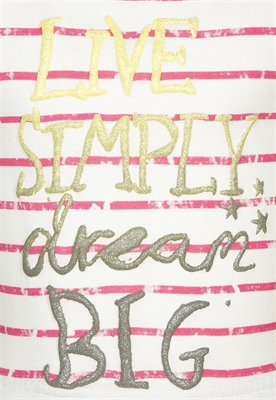 LIVE
SIMPLY,
dream
BIG